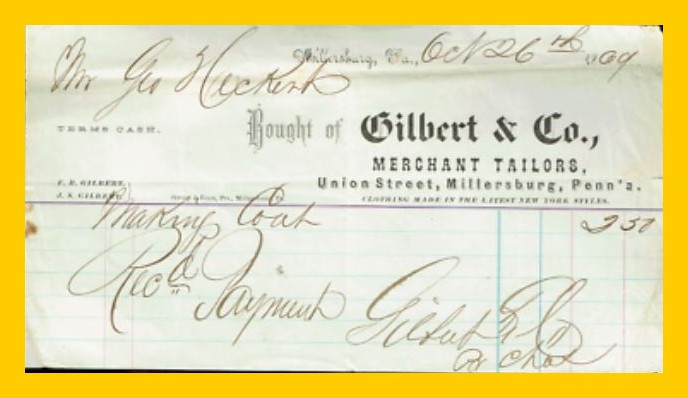 Millersburg, Pa., Oct 26th 1869
Mr Geo Heckert
TERMS CASH.
Bought of Gilbert & Co.,
MERCHANT TAILORS,
F. B. GILBERT.
J. S. GILBERT.
Union Street, Millersburg, Penn'a.
CLOTHING MADE IN THE LATEST NEW YORK STYLES.
Making Coat 2 50
Rec'd Payment
Gilbert & Co
Pr Chas